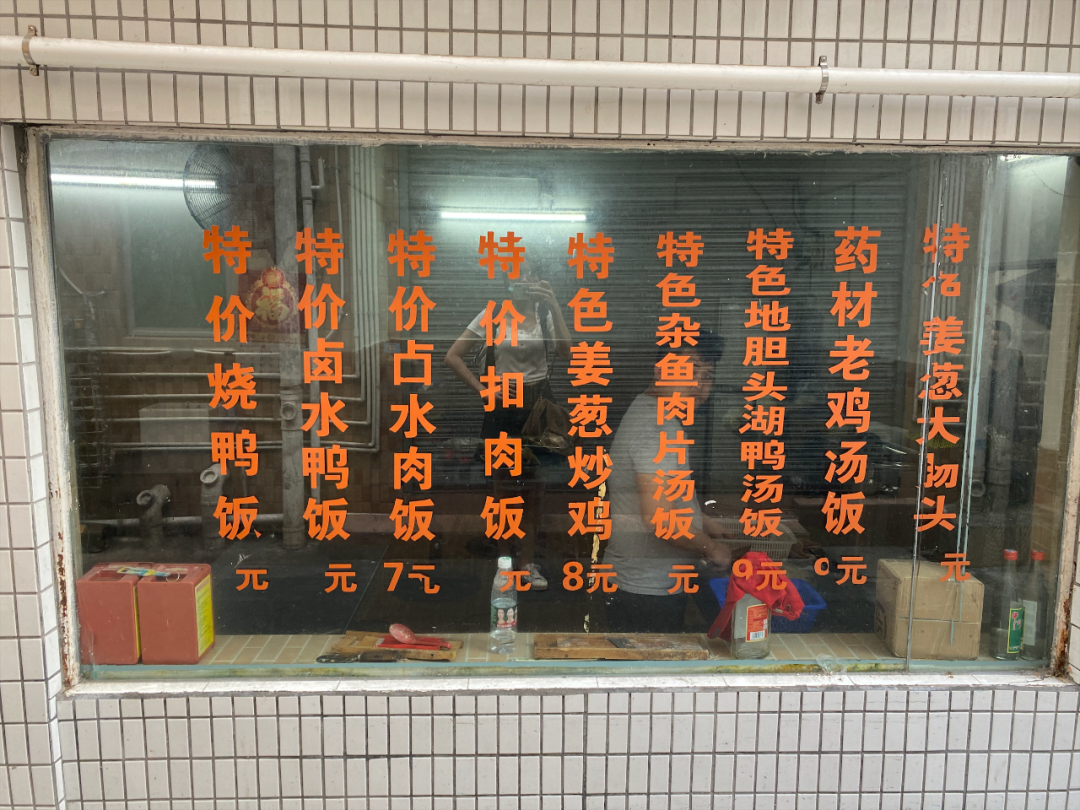 特价烧鸭饭 元
特价卤水鸭饭 元
特价占水肉饭 7元
特价扣肉饭 元
特色姜葱炒鸡 8元
特色杂鱼肉片汤饭 元
特色地胆头湖鸭汤饭 9元
药材老鸡汤饭 9元
特色姜葱大肠头 元